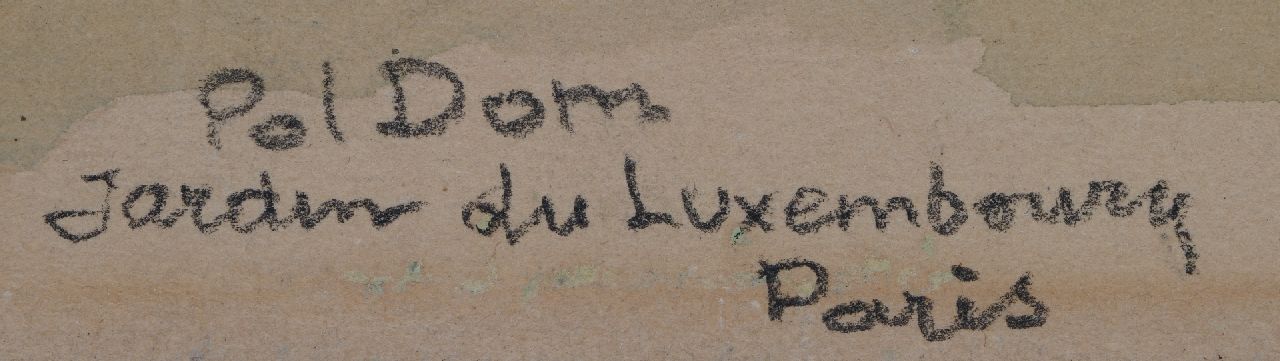 Pol Dom
Jardin du Luxembourg
Paris